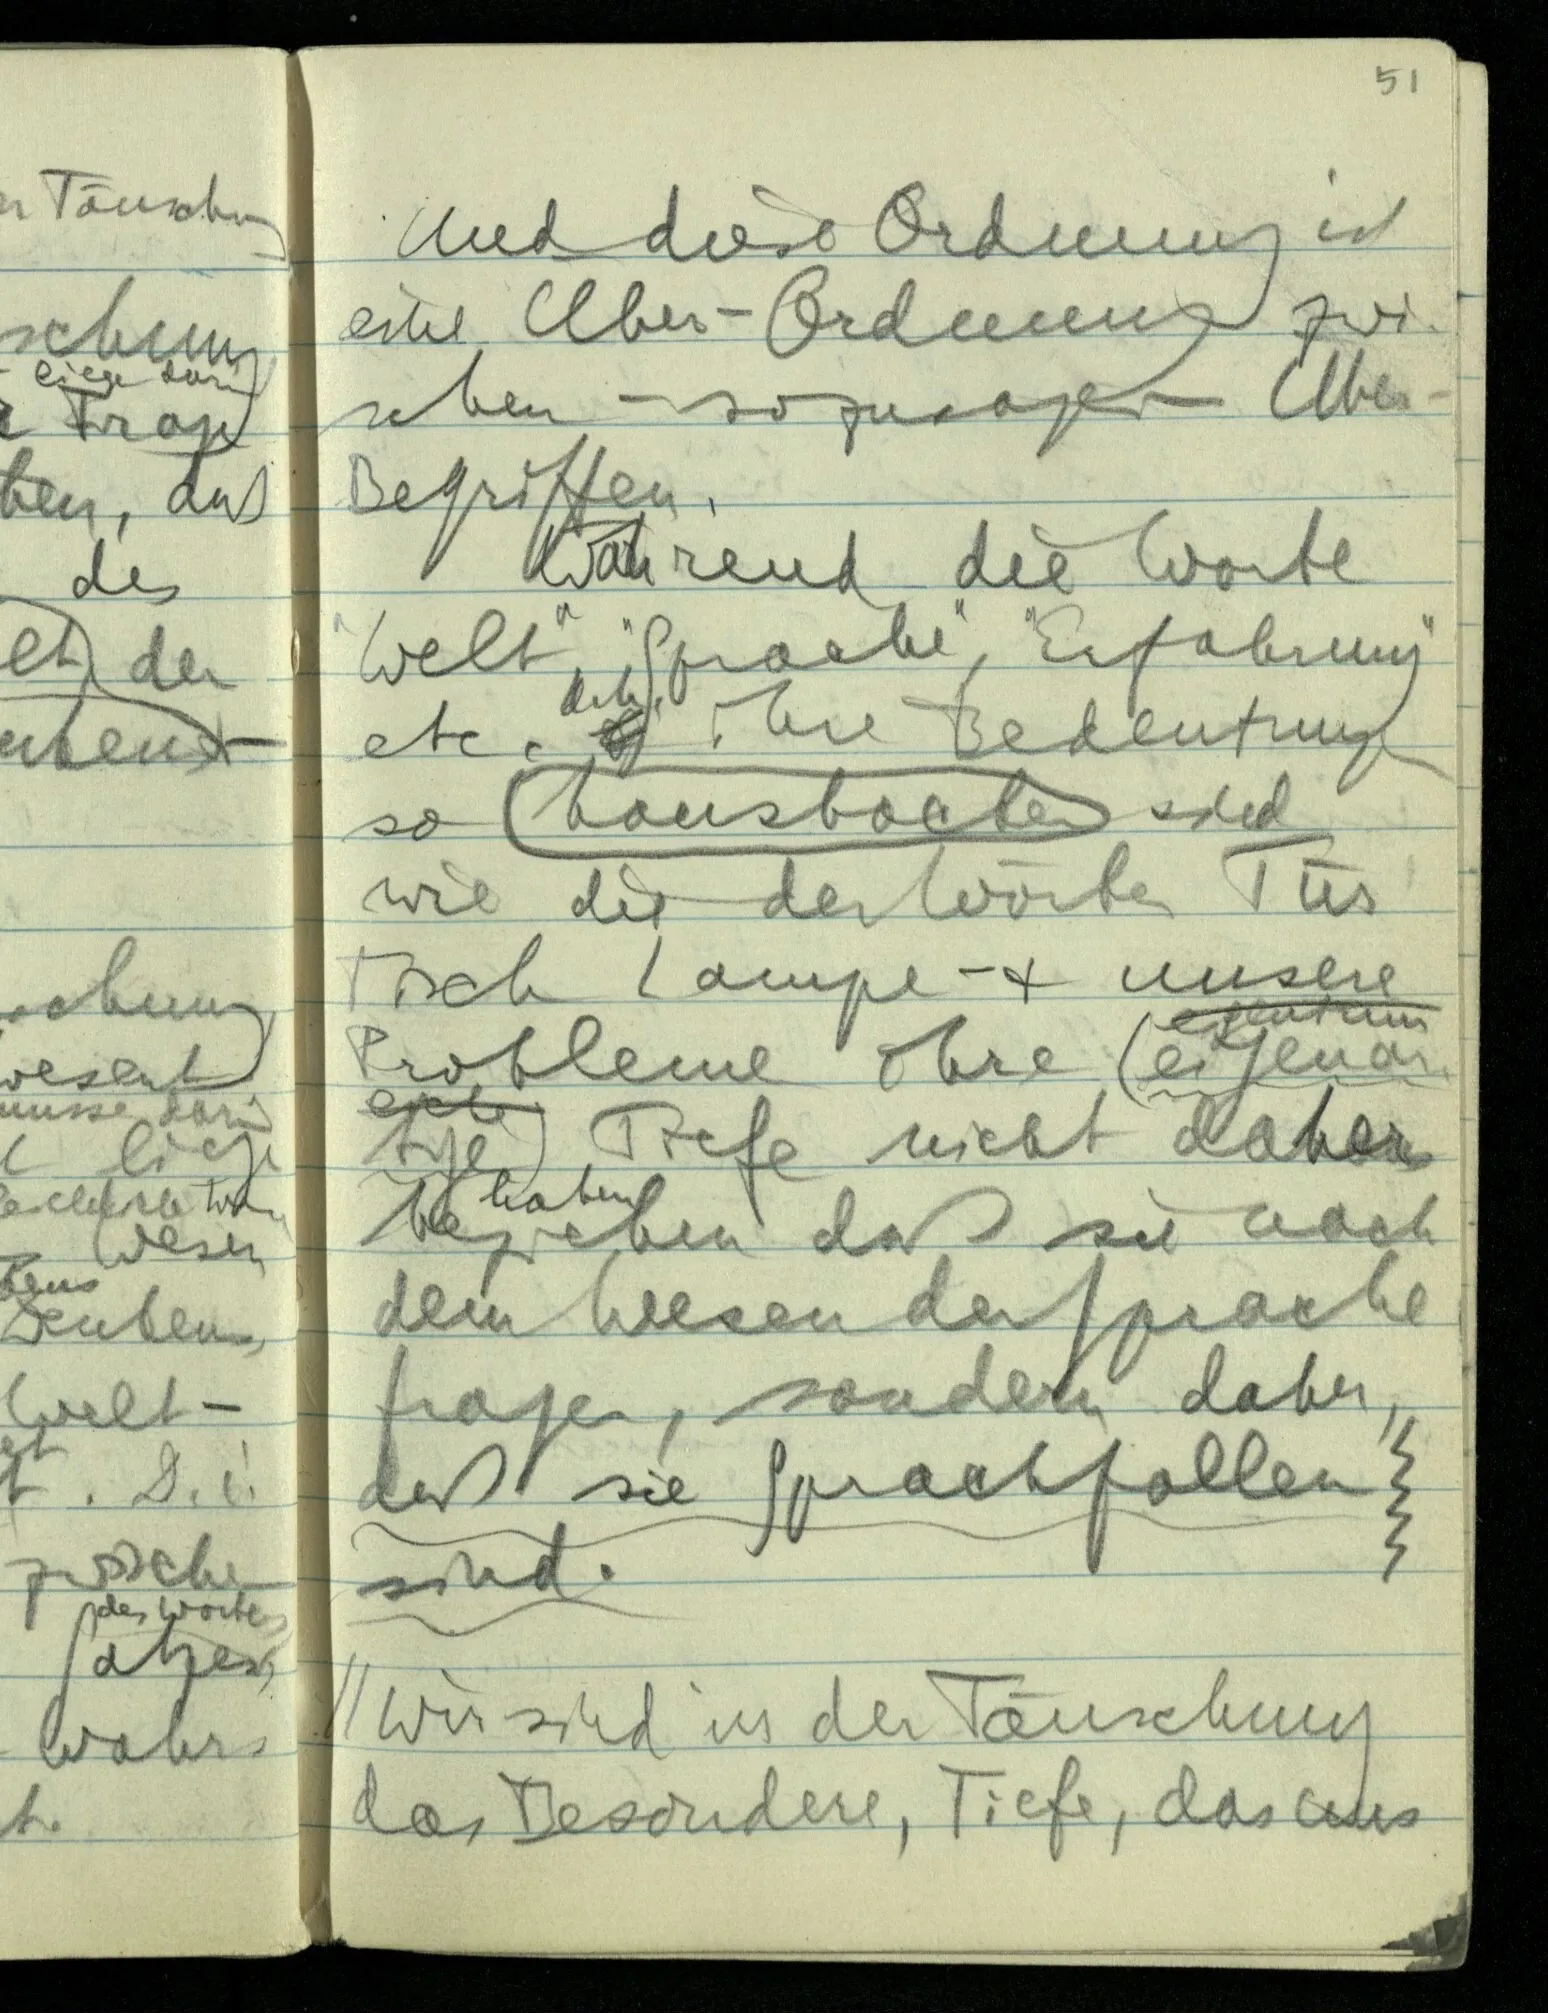 51
er Täuschung
schung
liege darin
Frage
ben, daß
des
der
Welt-
t. D.i.
zwische
des Wortes
Satzes,
wahr
t.
Und diese Ordnung ist
eine Über-Ordnung zwi-
schen – sozusagen – Über-
Begriffen.
Während die Worte
"Welt", "Sprache", "Erfahrung"
etc. doch ihre Bedeutung
so hausbacken sind
wie die der Wörter Tür
Tisch Lampe – & unsere
Probleme ihre (eigenar-
tige) Tiefe nicht daher
haben
beziehen daß sie nach
dem Wesen der Sprache
fragen, sondern daher,
daß sie Sprachfallen
sind.
// Wir sind in der Täuschung
das Besondere, Tiefe, das uns